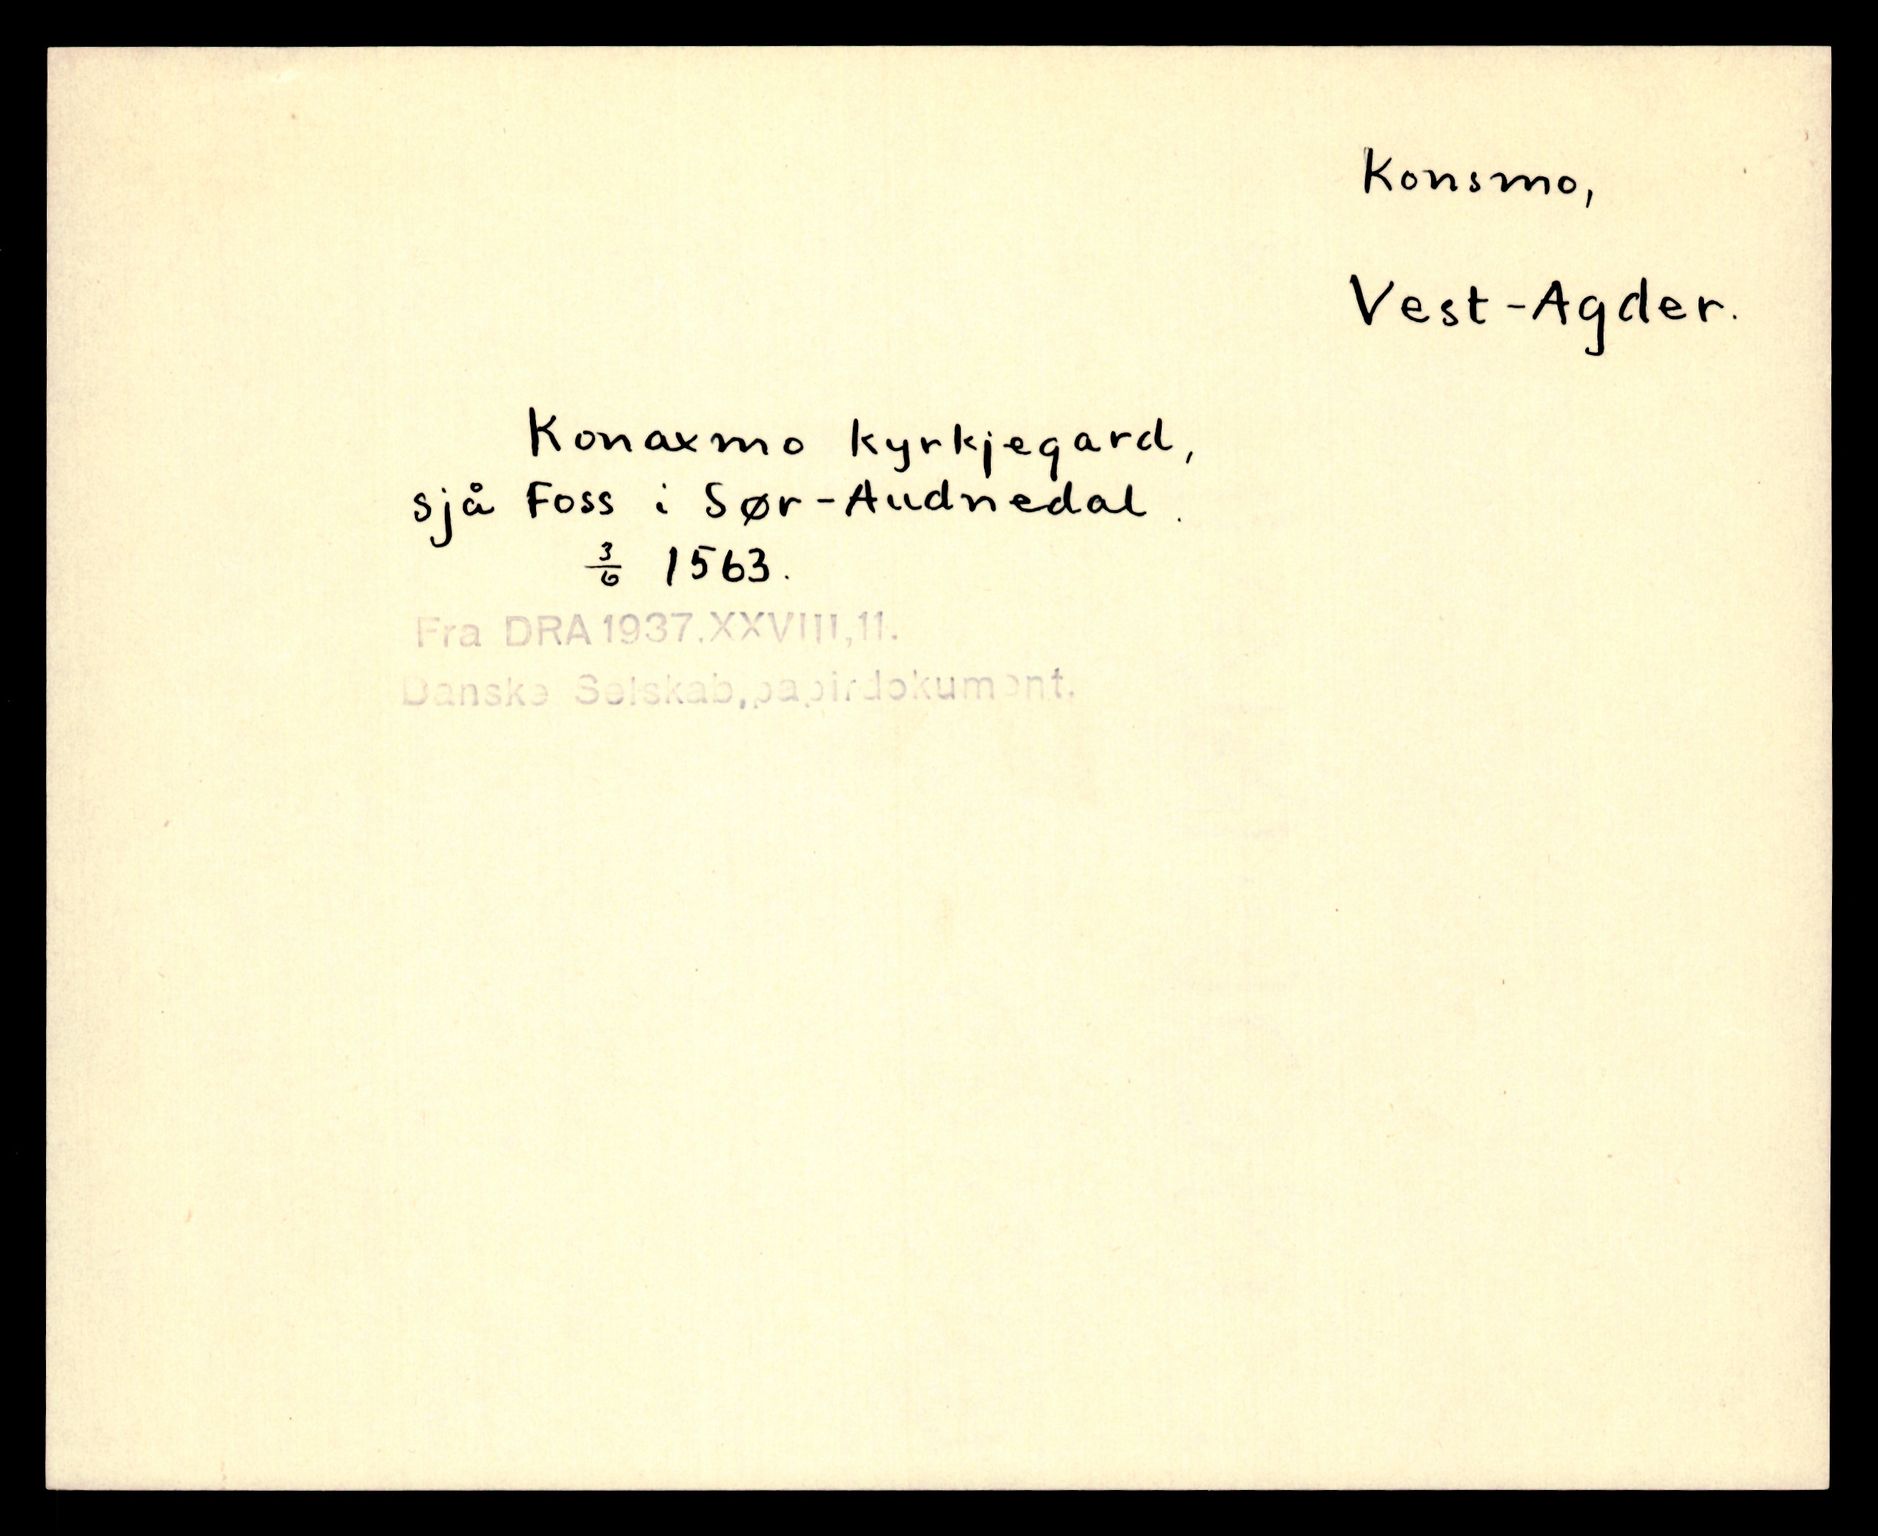 Konsmo,
Vest-Agder.
Konaxmo kyrkjegard,
sjå Foss i Sør-Audnedal.
3/6 1563.
Fra DRA 1937.XXVIII,11.
Danske Selskab,papirdokument.